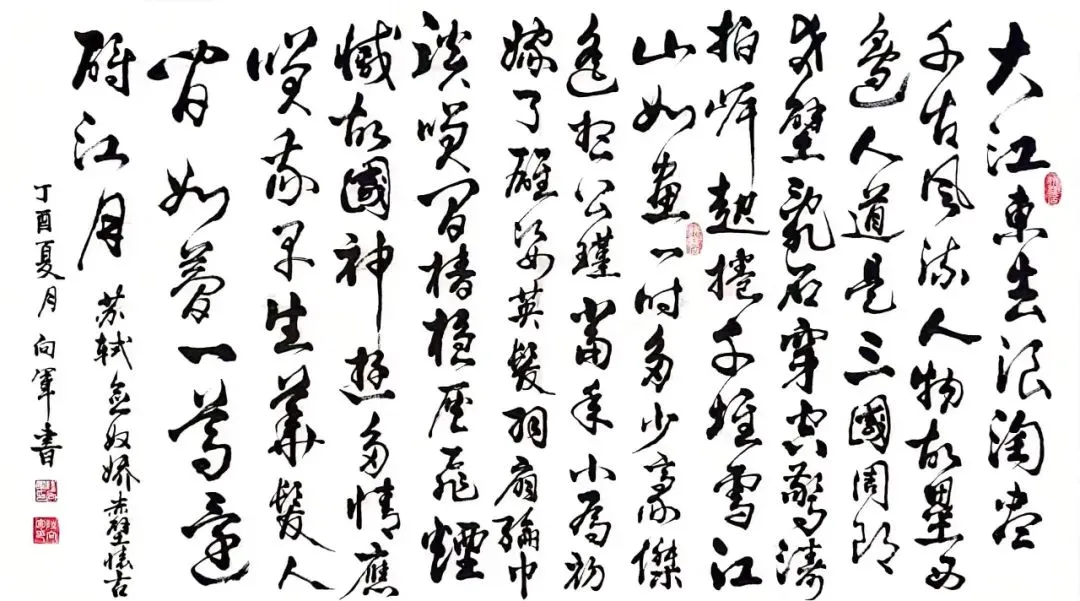 大江東去浪淘盡
千古風流人物故壘西
邊人道是三國周郎
赤壁亂石穿空驚濤
拍岸起捲千堆雪江
山如畫一時多少豪傑
遙想公瑾當年小喬初
嫁了雄姿英髮羽扇綸巾
談笑間檣櫓灰飛煙
滅故國神遊多情應
笑我早生華髮人
間如夢一尊還
酹江月
苏轼念奴娇赤壁懷古
丁酉夏月向軍書